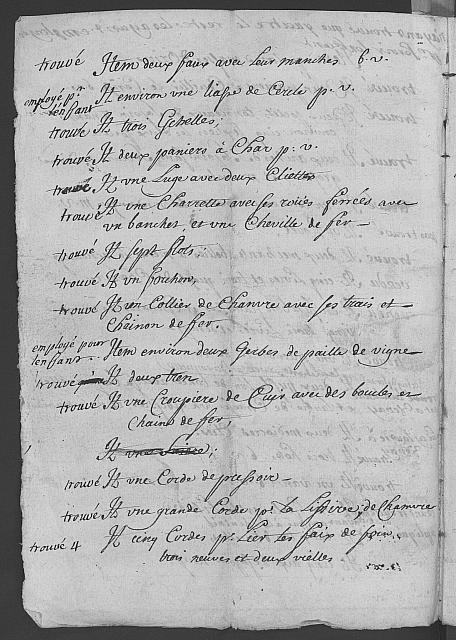 trouvé Item deux faux avec leur manches 6. v.
employé pr. It environ une liasse de Cercle p. v.
l'enfant
trouvé It trois Echelles;
trouvé It deux paniers à Char p. v.
trouvé It une Luge avec deux Cliettes
trouvé It une Charrette avec ses roües ferrées avec
un banchet, et une Cheville de fer —
trouvé It sept flots;
trouvé It un forchon,
trouvé It un Collier de Chanvre avec ses trais et
Chainon de fer.
employé pour Item environ deux Gerbes de paille de vigne
l'enfant
trouvé It deux tren
trouvé It une Croupiere de Cuir avec des boucles et
Chaine de fer,
It une
trouvé It une Corde de pressoir —
trouvé It une grande Corde pr. La Lissive, de Chanvre
trouvé 4 It cinq Cordes pr. Lier les faix de foin.
trois neuves et deux vielles